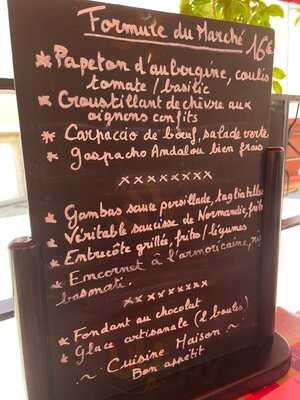 Formule du Marché 16€
* Papeton d'aubergine, coulis
tomate / basilic
* Croustillant de chèvre aux
oignons confits
* Carpaccio de bœuf, salade verte
* gaspacho Andalou bien frais
xxxxxxxx
* Gambas sauce persillade, tagliatelles
* Véritable saucisse de Normandie, frites
* Entrecôte grillée, frites / légumes
* Encornet à l'armoricaine, riz
basmati.
xxxxxxxx
* Fondant au chocolat
* Glace artisanale (2 boules)
~ Cuisine Maison ~
Bon appétit